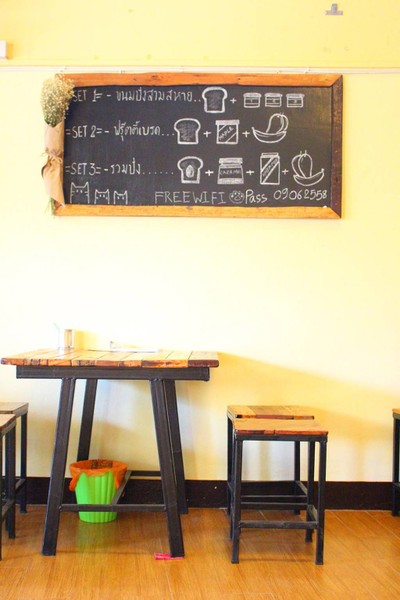 SET 1= - ขนมปังสามสหาย.. + 
=SET 2= - ฟรุ๊ตตี้เบรด... + MILK +
=SET 3= - รวมปัง...... + + +
FREE WIFI Pass 09062558